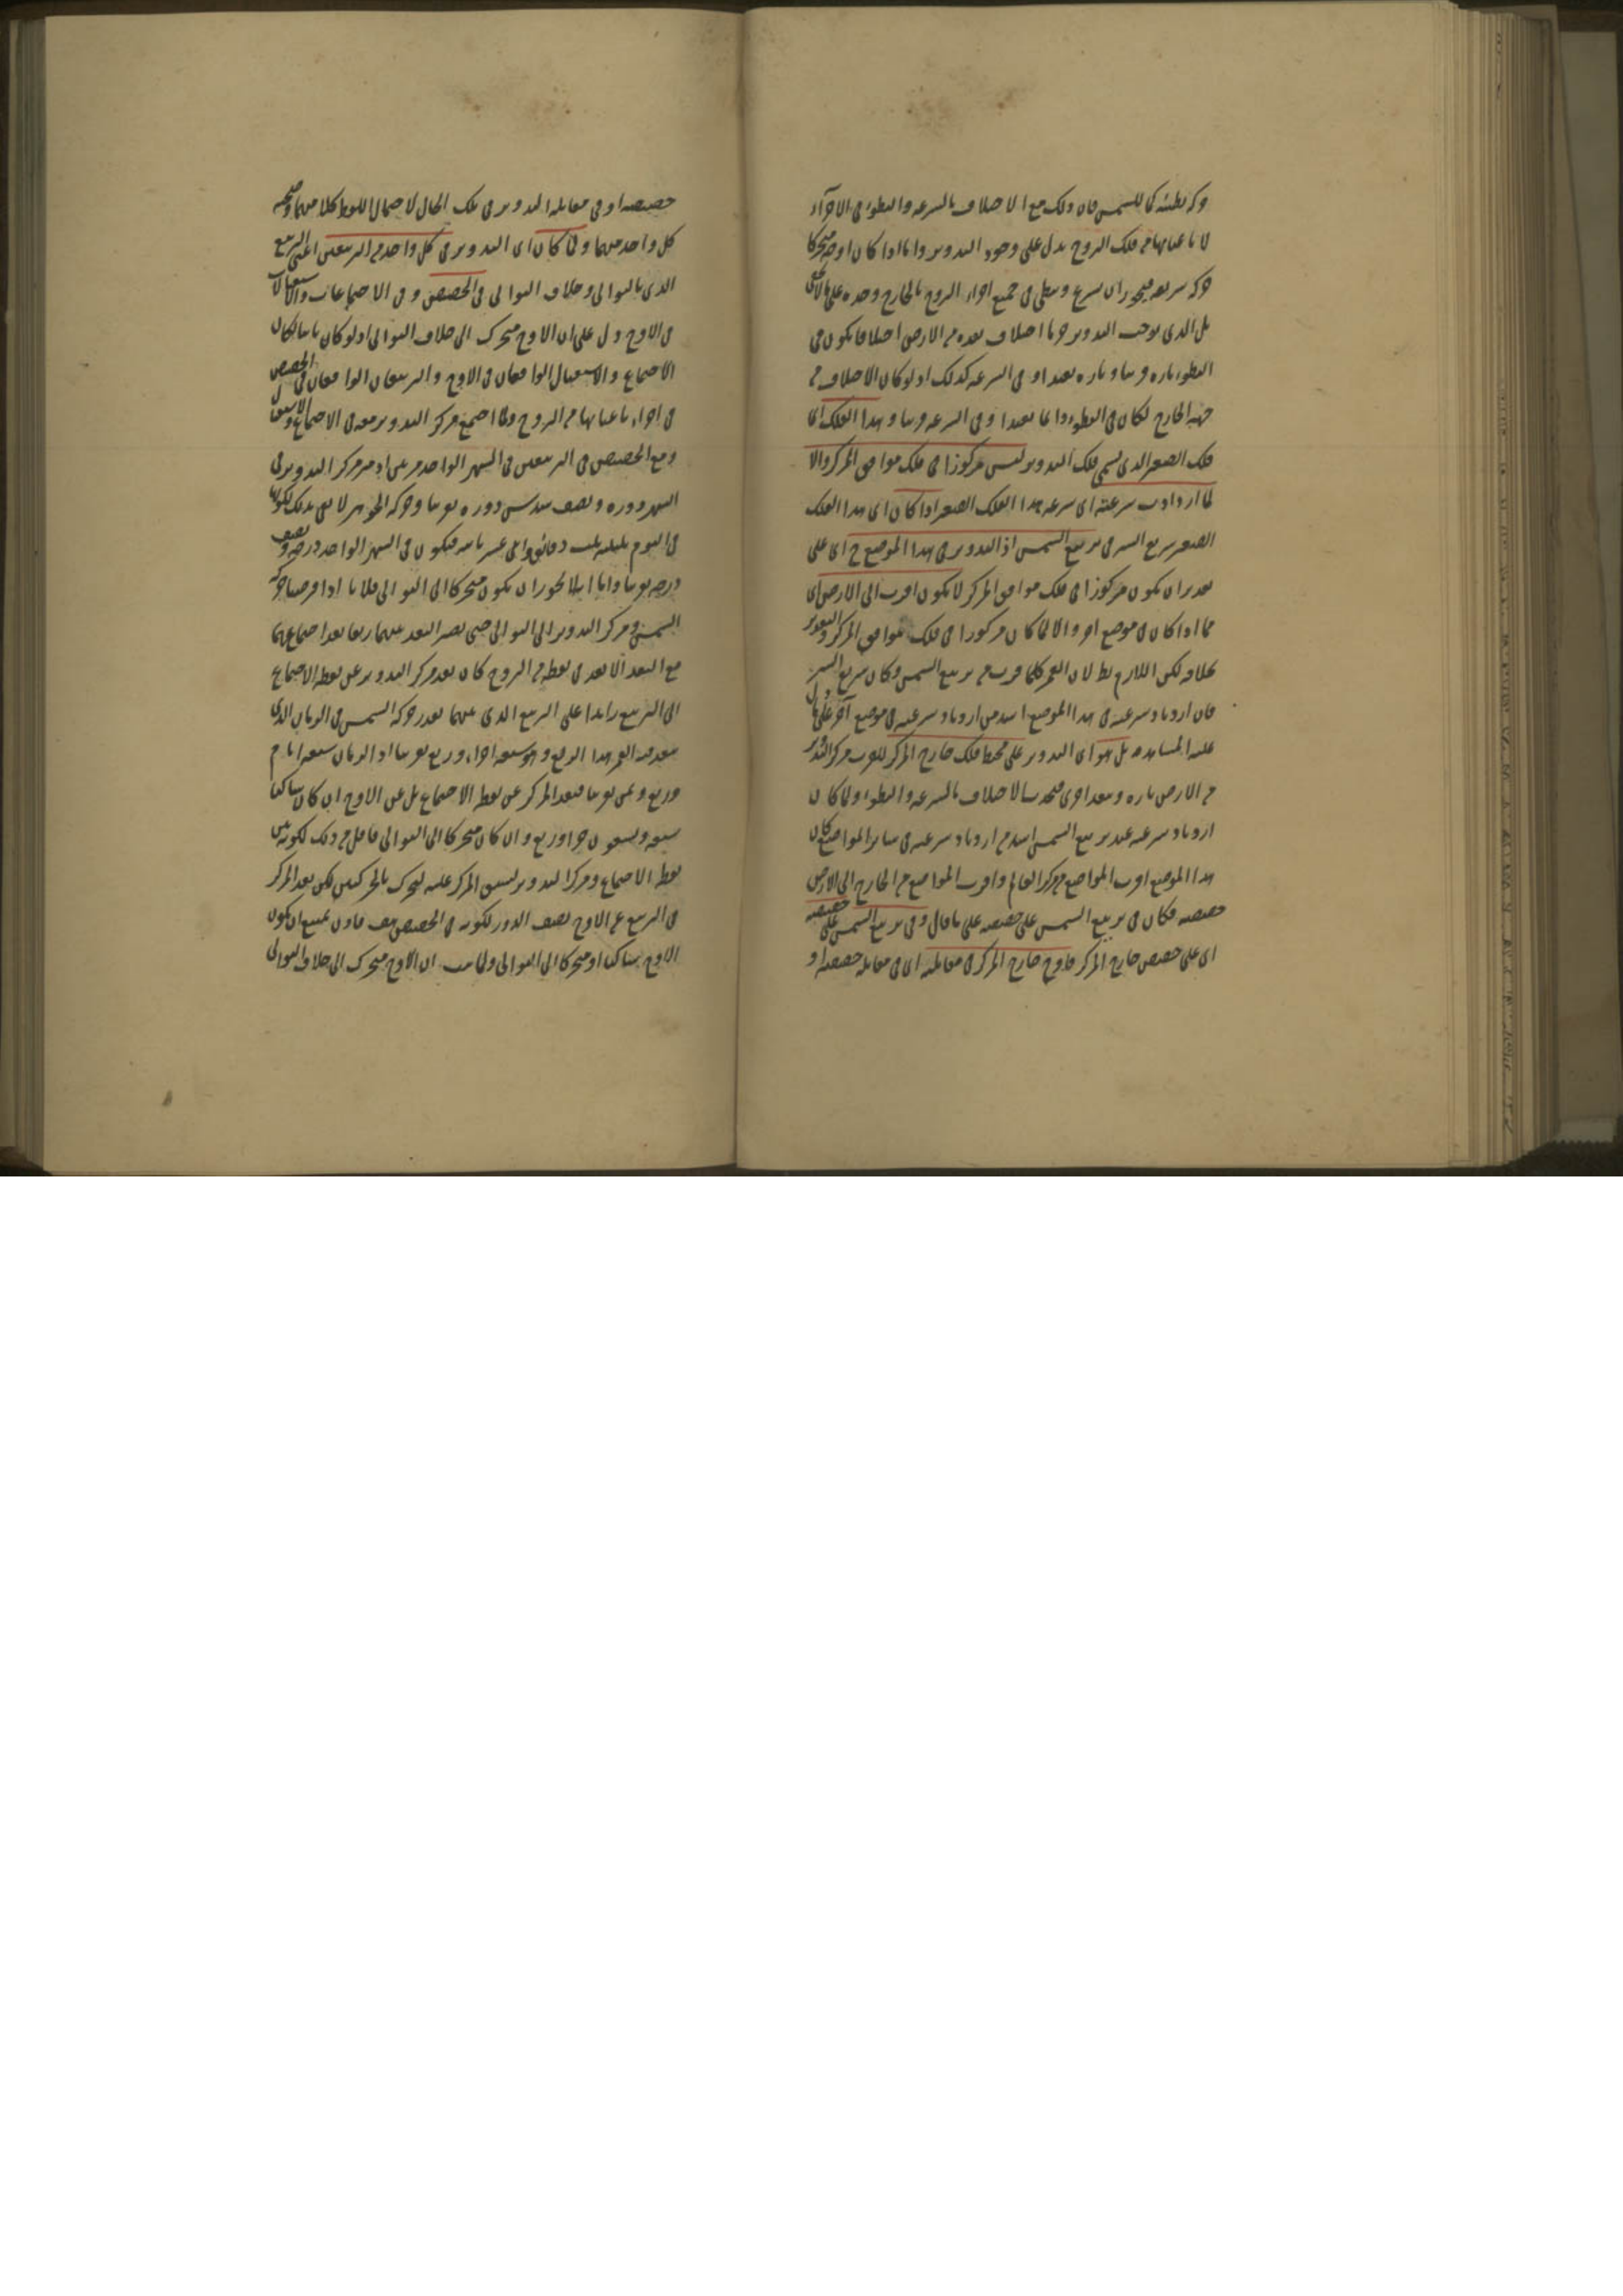 حركة بطيئة كما للشمس فان ذلك مع الاختلاف بالسرعة والبطؤ في الاجزاء
لا باعيانها من فلك البروج يدل على وجود التدوير واما اذا كان اوجه متحركا
حركة سريعة فيجوز ان يسرع ويبطئ في جميع اجزاء البروج بالخارج وحده على
بل الذي يوجب التدوير جزما اختلاف بعده من الارض اختلافا يكون في
البطؤ تارة قريبا وتارة بعيدا و في السرعة كذلك اذ لو كان الاختلاف من
جهة الخارج لكان في البطؤ دائما بعيدا وفي السرعة قريبا وهذا الفلك اى
فلك الصغير الذي يسمى فلك التدوير ليس مركوزا في فلك موافق المركز والا
لما ازدادت سرعته اى سرعة هذا الفلك الصغير اذا كان اى هذا الفلك
الصغير سريع السير في تربيع الشمس اذ التدوير في هذا الموضع ح اى على
تقدير ان يكون مركوزا في فلك موافق المركز لا يكون اقرب الى الارض اى
مما اذا كان في موضع اخر والا لما كان مركوزا في فلك موافق المركز والتقدير
خلافه لكن اللازم بط لان القمر كلما قرب من تربيع الشمس وكان سريع السير
فان ازدياد سرعته في هذا الموضع اشد من ازدياد سرعته في موضع آخر على ما دل
عليه المشاهدة بل هو اى التدوير على محيط فلك خارج المركز ليقرب مركز التدوير
من الارض تارة ويبعد اخرى فيحدث الاختلاف بالسرعة والبطؤ ولما كان
ازدياد سرعته عند تربيع الشمس اشد من ازدياد سرعته في سائر المواضع كان
هذا الموضع اقرب المواضع من مركز العالم واقرب المواضع من الخارج الى الارض
حضيضه فكان في تربيع الشمس على حضيضه على ما قال وفي تربيع الشمس على حضيضه
اى على حضيض خارج المركز فاوج خارج المركز في مقابلته اى في مقابلة حضيضه او
حضيضه او في مقابلة التدوير في تلك الحال لاحتمال اللفظ كلا منهما وصحة
كل واحد منهما ولما كان اى التدوير في كل واحد من التربيعين اعنى التربيع
الذي بالتوالى وخلاف التوالى في الحضيض و في الاجتماعات والاستقبالات
في الاوج دل على ان الاوج متحرك الى خلاف التوالى اذ لو كان ثابتا لكان
الاجتماع والاستقبال الواقعان في الاوج والتربيعان الواقعان في الحضيض
في اجزاء باعيانها من البروج ولما اجتمع مركز التدوير معه في الاجتماع والاستقبال
ومع الحضيض في التربيعين في الشهر الواحد مرتين اذ يسير مركز التدوير في
الشهر دورة ونصف سدس دورة تقريبا وحركة الجوزهر لا تفى بذلك لكونها
في اليوم بليلته ثلث دقائق واثنى عشر ثانية فيكون في الشهر الواحد درجة ونصف
درجة تقريبا واما انه لا يجوز ان يكون متحركا الى التوالى فلانا اذا فرضنا حركة
الشمس ومركز التدوير الى التوالى حتى يصير البعد بينهما ربعا بعد اجتماعهما
مع البعد الابعد في نقطة من البروج كان بعد مركز التدوير عن نقطة الاجتماع
الى التربيع زائدا على الربع الذي بينهما بقدر حركة الشمس في الزمان الذي
بعد فيه القمر هذا الربع وهو سبعة اجزاء وربع تقريبا اذ الزمان سبعة ايام
وربع وثمن تقريبا فبعد المركز عن نقطة الاجتماع بل عن الاوج ان كان ساكنا
سبعة وتسعون جزءا وربع وان كان متحركا الى التوالى فاقل من ذلك لكونه بين
نقطة الاجتماع ومركز التدوير لسبق المركز عليه لتحركه بالحركتين لكن بعد المركز
في التربيع عن الاوج نصف الدور لكونه في الحضيض هف فاذن يمتنع ان يكون
الاوج ساكنا او متحركا الى التوالى ولما ثبت ان الاوج متحرك الى خلاف التوالى